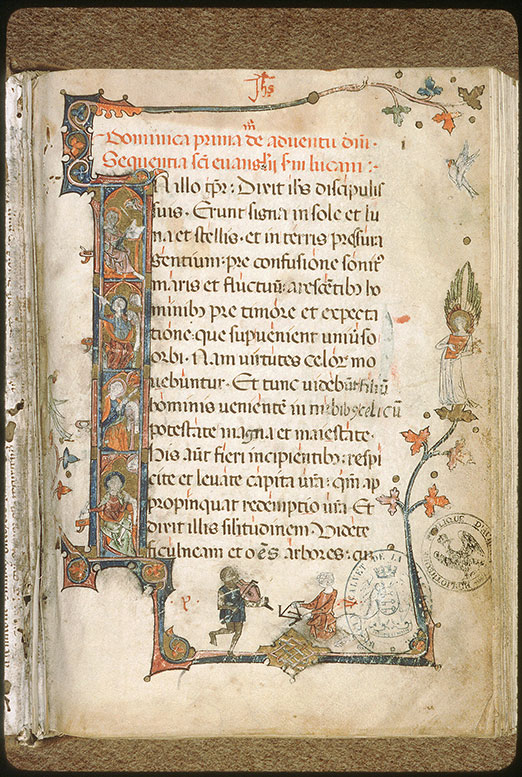 Ihs
Dominica prima de aduentu dni.
Sequentia sci euanglii s'm lucam:
IN illo tpr: Dixit ihs discipulis
suis. Erunt signa in sole et lu
na et stellis. et in terris pressura
gentium: pre confusione sonit'
maris et fluctuu: arescetib; ho
minib; pre timore et expecta
tione: que supuenient uniuso
orbi. Nam uirtutes celor mo
uebuntur. Et tunc uidebunt filiu
hominis veniente in nubib;
potestate magna et maiestate.
His aut fieri incipientib; respi
cite et leuate capita ura: qm ap
propinquat redemptio ura. Et
dixit illis silitudinem Videte
ficulneam et oes arbores: cu